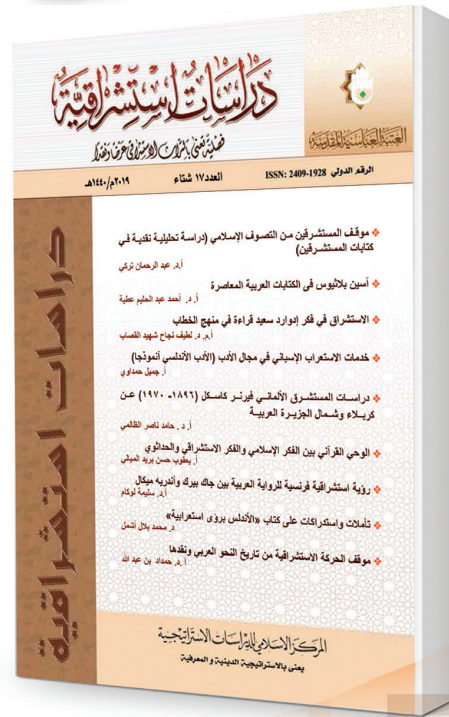 دراسات استشراقية
فصلية تعنى بالتراث الاستشراقي عرضا ونقدا
العتبة العباسية المقدسة
الرقم الدولي ISSN: 2409-1928
العدد ١٧ شتاء
٢٠١٩م/١٤٤٠هـ
موقف المستشرقين من التصوف الإسلامي (دراسة تحليلية نقدية في
كتابات المستشرقين)
أ.د. عبد الرحمان تركي
آسين بلاثيوس فى الكتابات العربية المعاصرة
أ. د. أحمد عبد الحليم عطية
الاستشراق في فكر إدوارد سعيد قراءة في منهج الخطاب
أ.م. د. لطيف نجاح شهيد القصاب
خدمات الاستعراب الإسباني في مجال الأدب (الأدب الأندلسي أنموذجا)
أ. جميل حمداوي
دراسات المستشرق الألماني فيرنر كاسكل (١٨٩٦ـ ١٩٧٠) عن
كربلاء وشمال الجزيرة العربية
أ. د . حامد ناصر الظالمي
الوحي القرآني بين الفكر الإسلامي والفكر الاستشراقي والحداثوي
أ. يعقوب حسن بريد الميالي
رؤية استشراقية فرنسية للرواية العربية بين جاك بيرك وأندريه ميكال
أ.د. سليمة لوكام
تأملات واستدراكات على كتاب «الأندلس برؤى استعرابية»
د. محمد بلال أشمل
موقف الحركة الاستشراقية من تاريخ النحو العربي ونقدها
أ.د. حمداد بن عبد الله
دراسات استشراقية
المركز الاسلامي للدراسات الاستراتيجية
يعنى بالاستراتيجية الدينية و المعرفية